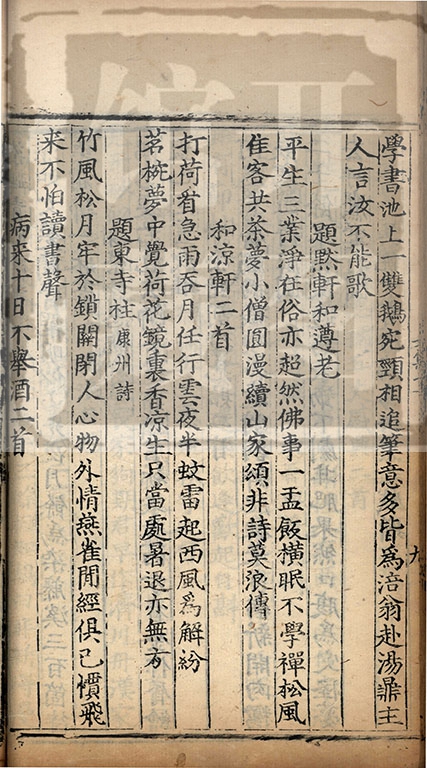 學書池上一雙鵝宛頸相追筆意多皆爲涪翁赴湯鼎主
人言汝不能歌
題默軒和遵老
平生三業淨在俗亦超然佛事一盂飯橫眠不學禪松風
佳客共茶夢小僧圓漫續山家頌非詩莫浪傳
和涼軒二首
打荷看急雨吞月任行雲夜半蚊雷起西風爲解紛
茗椀夢中覺荷花鏡裏香涼生只當處暑退亦無方
題東寺柱康州詩
竹風松月牢於鎖關閉人心物外情燕雀聞經俱已慣飛
来不怕讀書聲
病来十日不舉酒二首